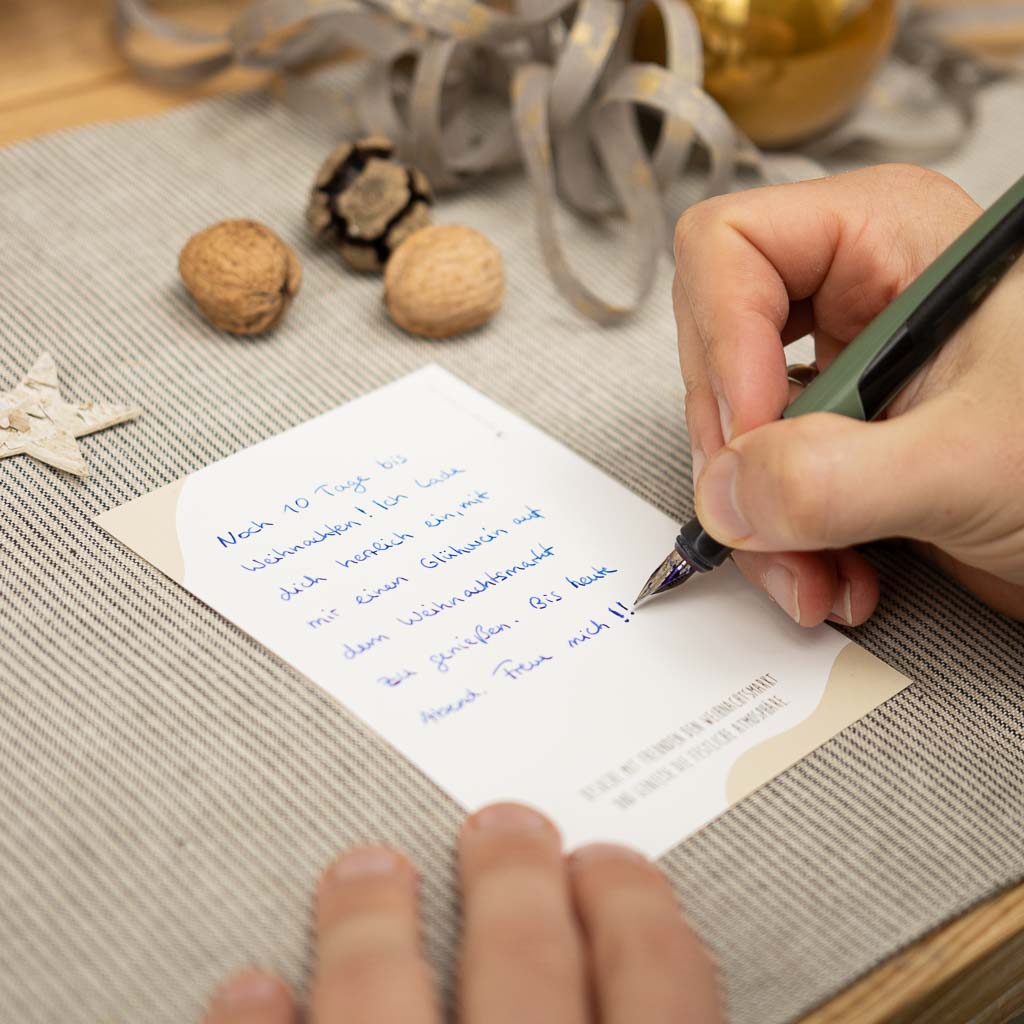 Noch 10 Tage bis
Weihnachten! Ich Lade
dich herzlich ein, mit
mir einen Glühwein auf
dem Weihnachtsmarkt
zu genießen. Bis heute
Abend. Freue mich !!
BESUCHE MIT FREUNDEN DEN WEIHNACHTSMARKT
UND GENIESS DIE FESTLICHE ATMOSPHÄRE.